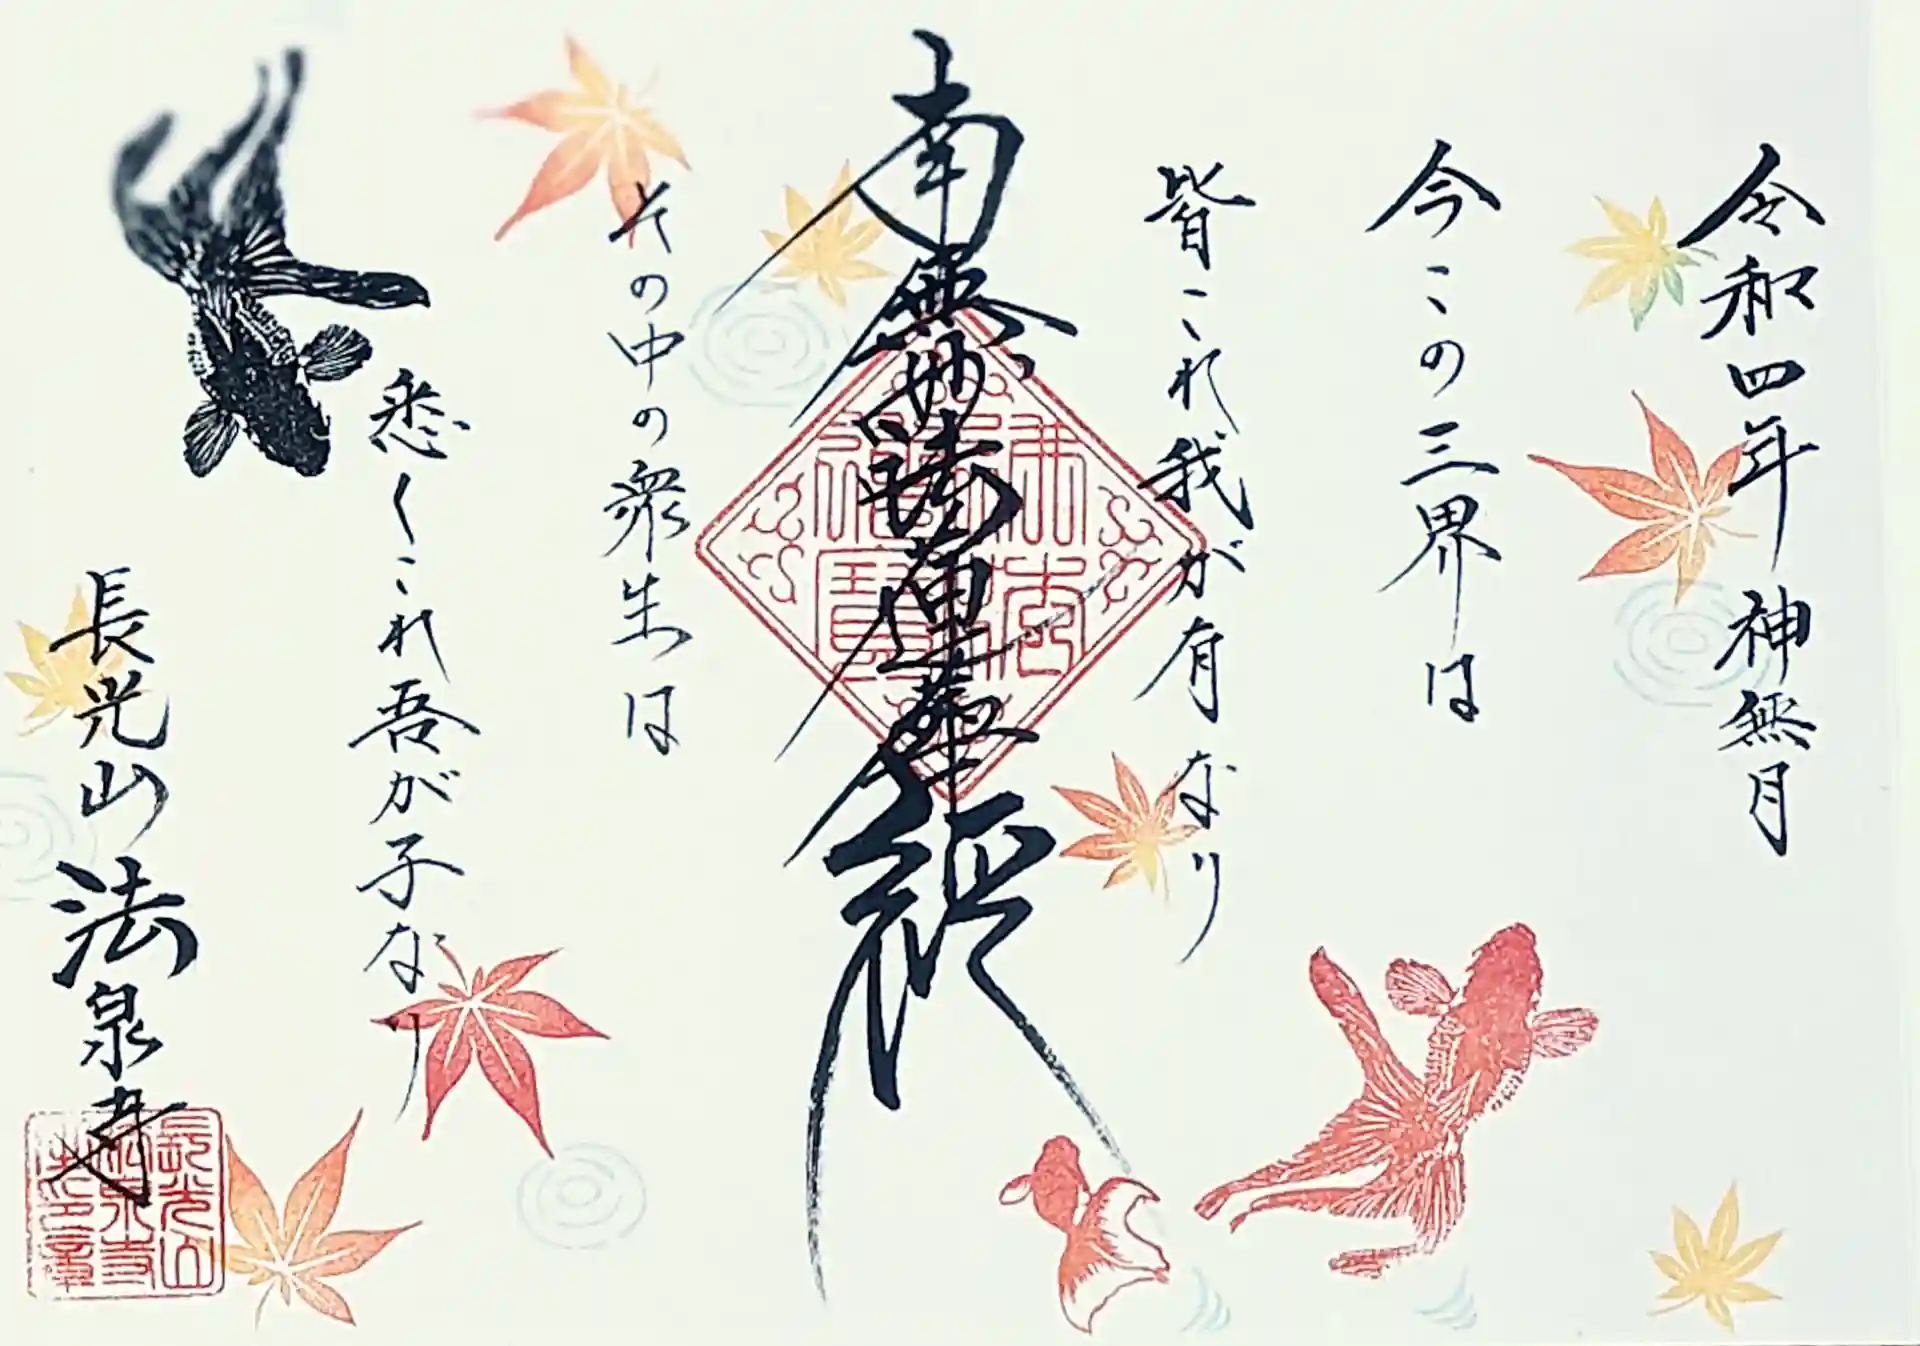 令和四年 神無月
今この三界は
皆これ我が有なり
南無妙法蓮華経
その中の衆生は
悉くこれ吾が子なり
長光山 法泉寺
佛法
僧寳
長光山
法泉寺